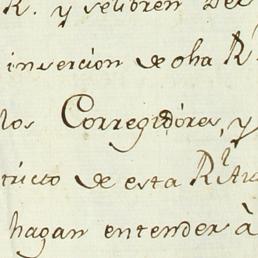 R. y se libren Des
inserción de dha R
los Corregidores, y
tricto de esta Rl. Au
hagan entender à